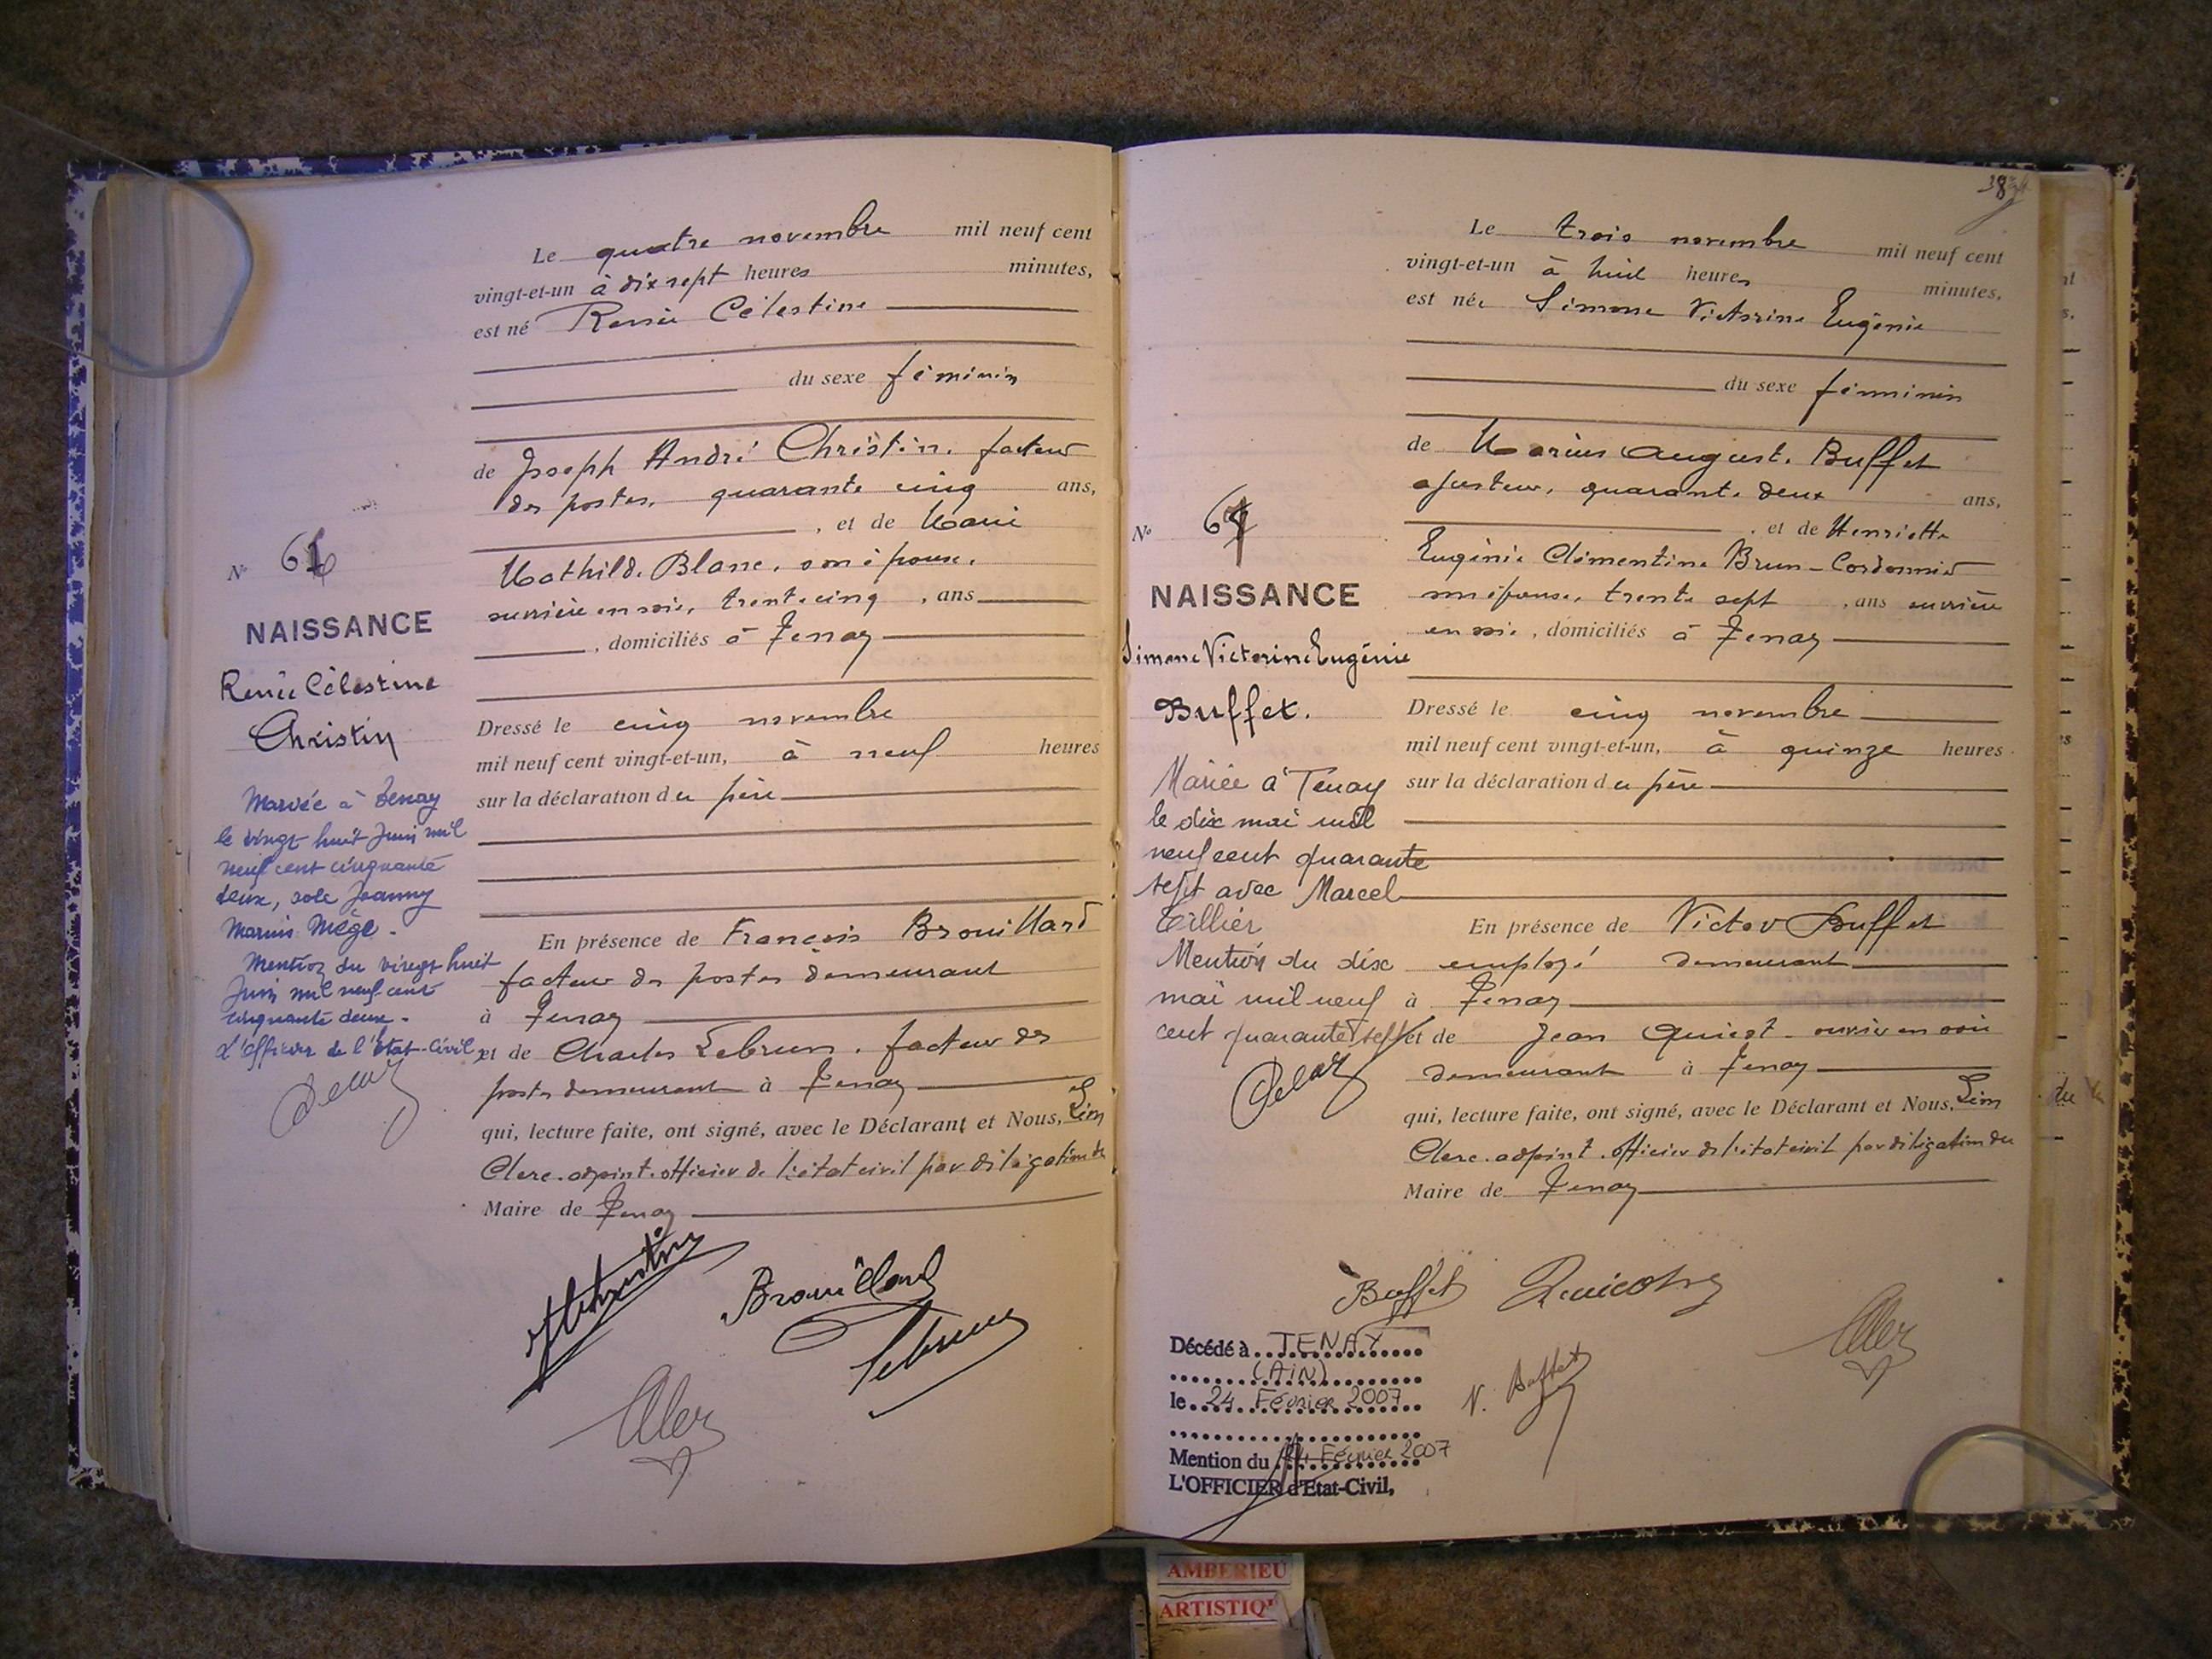 Le quatre novembre mil neuf cent
vingt-et-un à dix sept heures minutes,
est né Renée Célestine
du sexe féminin
de Joseph André Christin, facteur
des postes, quarante cinq ans,
, et de Marie
Mathilde Blanc, son épouse,
ouvrière en soie, trente cinq , ans
, domiciliés à Tenay
Dressé le cinq novembre
mil neuf cent vingt-et-un, à neuf heures
sur la déclaration du père
En présence de François Brouillard
facteur des postes demeurant
à Tenay
et de Charles Lebrun, facteur des
postes demeurant à Tenay
qui, lecture faite, ont signé, avec le Déclarant et Nous, Léon
Clerc, adjoint, officier de l'état civil par délégation du
Maire de Tenay
Brouillard
Lebrun
N°
NAISSANCE
Renée Célestine
Christin
Mariée à Tenay
le vingt huit Juin mil
neuf cent cinquante
deux, avec Joanny
Marius Mège.
Mention du vingt huit
Juin mil neuf cent
cinquante deux.
L'officier de l'Etat-Civil,
38
Le trois novembre mil neuf cent
vingt-et-un à huit heures minutes,
est née Simone Victorine Eugénie
du sexe féminin
de Marius Auguste Buffet
ajusteur, quarante deux ans,
, et de Henriette
Eugénie Clémentine Brun-Cordonnier
son épouse, trente sept , ans ouvrière
en soie , domiciliés à Tenay
Dressé le cinq novembre
mil neuf cent vingt-et-un, à quinze heures
sur la déclaration du père
En présence de Victor Buffet
employé demeurant
à Tenay
et de Jean Quicot ouvrier en soie
demeurant à Tenay
qui, lecture faite, ont signé, avec le Déclarant et Nous, Léon
Clerc, adjoint, officier de l'état civil par délégation du
Maire de Tenay
Buffet
V. Buffet
N° 67
NAISSANCE
Simone Victorine Eugénie
Buffet.
Mariée à Tenay
le dix mai mil
neuf cent quarante
sept avec Marcel
Tillier
Mention du dix
mai mil neuf
cent quarante sept
Décédé à TENAY
(AIN)
le 24 Février 2007
Mention du Février 2007
L'OFFICIER d'Etat-Civil,
du
AMBERIEU
ARTISTIQ